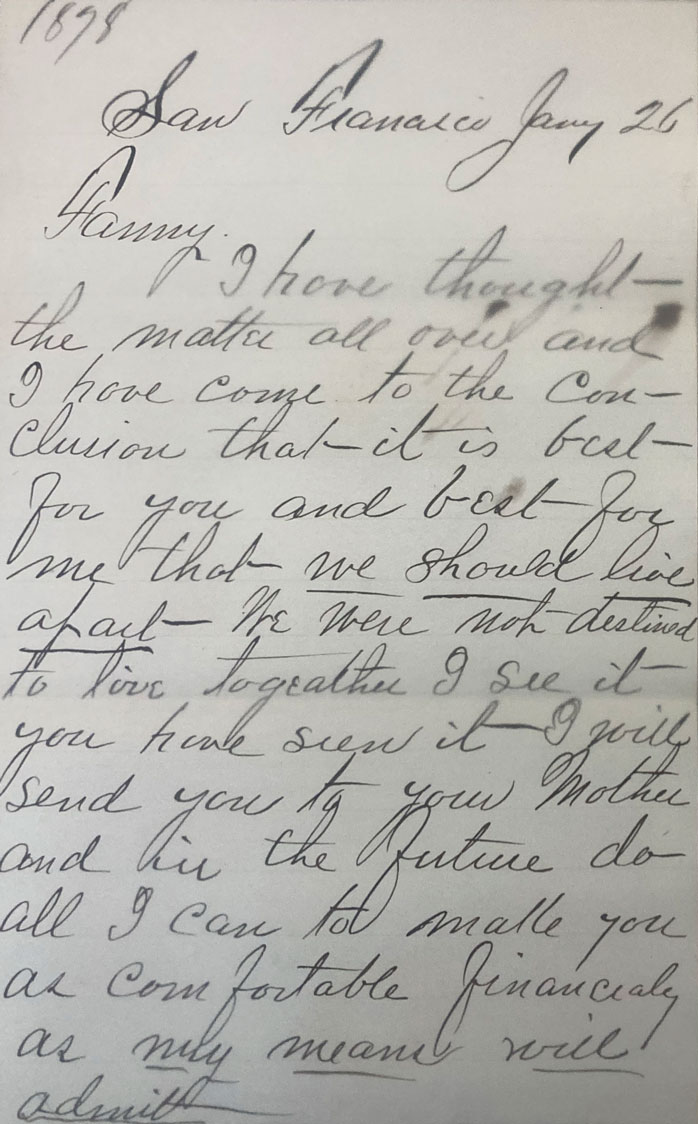 1898
San Francisco Jany 26
Fanny.
I have thought—
the matter all over and
I have come to the con-
clusion that it is best—
for you and best for
me that we should live
apart— We were not destined
to live togeather I see it
you have seen it— I will
send you to your Mother
and in the future do
all I can to make you
as comfortable financialy
as my means will
admit